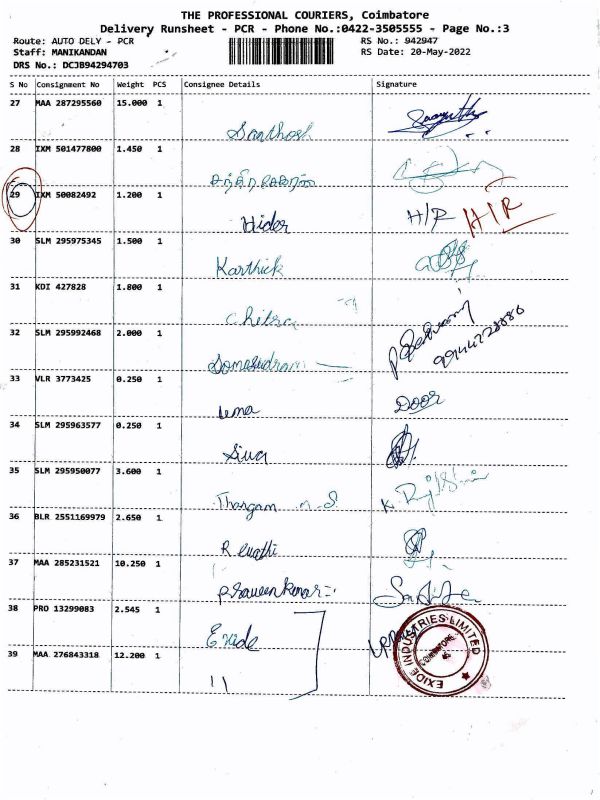 THE PROFESSIONAL COURIERS, Coimbatore
Delivery Runsheet - PCR - Phone No.:0422-3505555 - Page No.:3
Route: AUTO DELY - PCR RS No.: 942947
Staff: MANIKANDAN RS Date: 20-May-2022
DRS No.: DCJB94294703
S No Consignment No Weight PCS Consignee Details Signature
27 MAA 287295560 15.000 1
Santhosh
28 IXM 501477800 1.450 1
29 IXM 50082492 1.200 1
Hider H/R H/R
30 SLM 295975345 1.500 1
Karthick
31 KDI 427828 1.800 1
Chitra
32 SLM 295992468 2.000 1
33 VLR 3773425 0.250 1
Uma Door
34 SLM 295963577 0.250 1
Siva
35 SLM 295950077 3.600 1
Thangam
36 BLR 2551169979 2.650 1
37 MAA 285231521 10.250 1
Praveenkumar
38 PRO 13299083 2.545 1
Exide
39 MAA 276843318 12.200 1
11
EXIDE INDUSTRIES LIMITED
COIMBATORE